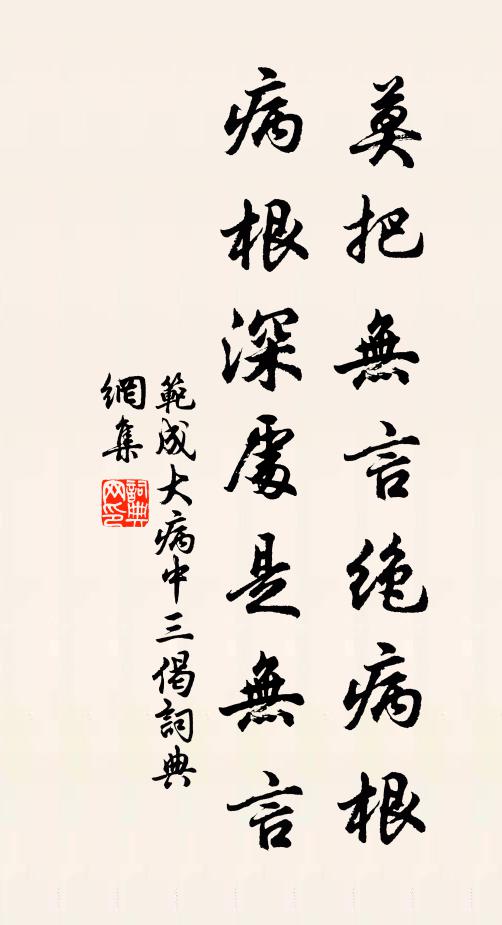 莫把無言絶病根
病根深處是無言
範成大病中三偈詞典
網集
詞典網印